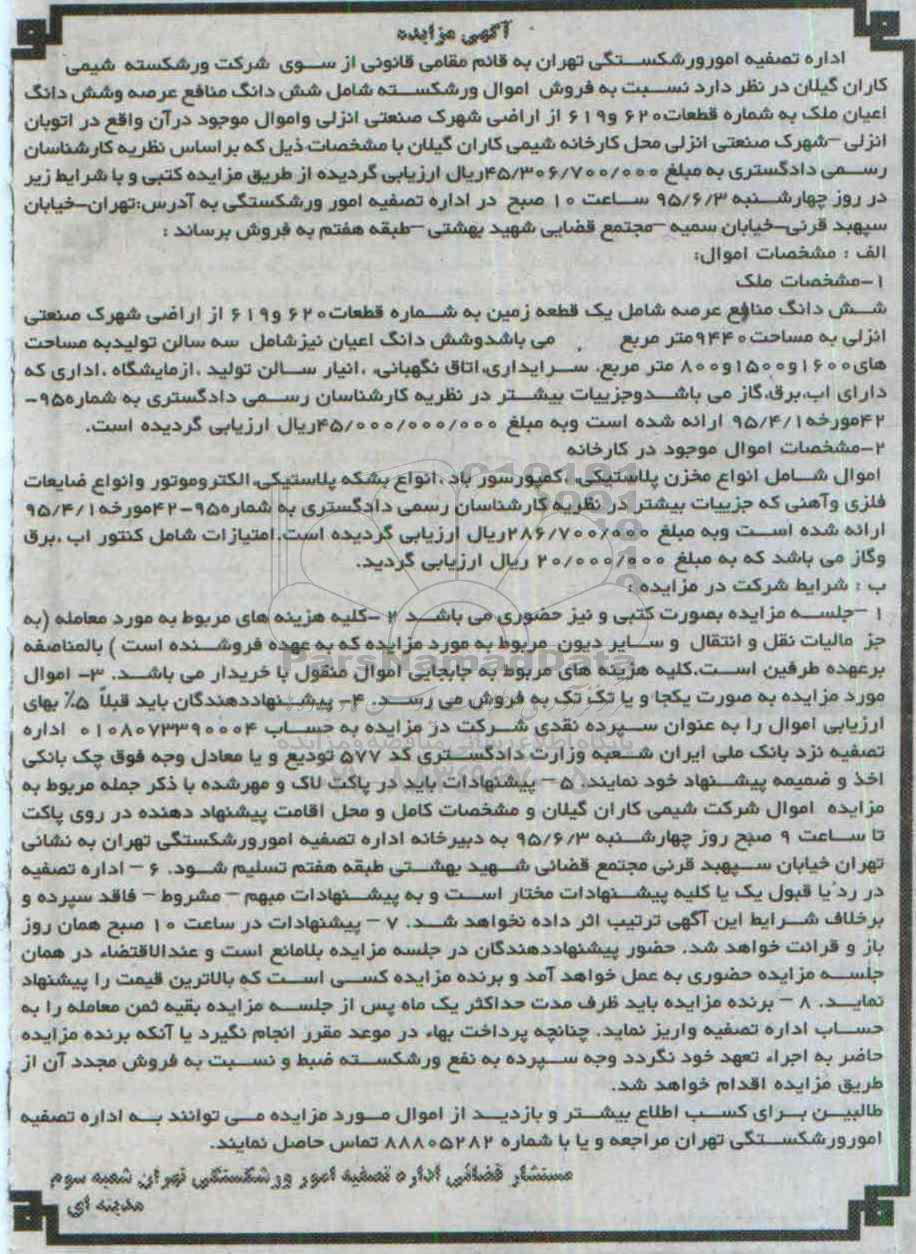 آگهی مزایده
اداره تصفیه امورورشکستگی تهران به قائم مقامی قانونی از سوی شرکت ورشکسته شیمی
کاران گیلان در نظر دارد نسبت به فروش اموال ورشکسته شامل شش دانگ منافع عرصه وشش دانگ
اعیان ملک به شماره قطعات۶۲۰ و۶۱۹ از اراضی شهرک صنعتی انزلی واموال موجود درآن واقع در اتوبان
انزلی –شهرک صنعتی انزلی محل کارخانه شیمی کاران گیلان با مشخصات ذیل که براساس نظریه کارشناسان
رسمی دادگستری به مبلغ ۴۵/۳۰۶/۷۰۰/۰۰۰ریال ارزیابی گردیده از طریق مزایده کتبی و با شرایط زیر
در روز چهارشنبه ۹۵/۶/۳ ساعت ۱۰ صبح در اداره تصفیه امور ورشکستگی به آدرس:تهران–خیابان
سپهبد قرنی–خیابان سمیه –مجتمع قضایی شهید بهشتی –طبقه هفتم به فروش برساند :
الف : مشخصات اموال:
۱-مشخصات ملک
شش دانگ منافع عرصه شامل یک قطعه زمین به شماره قطعات۶۲۰ و۶۱۹ از اراضی شهرک صنعتی
انزلی به مساحت۹۴۴۰متر مربع می باشدوشش دانگ اعیان نیزشامل سه سالن تولیدبه مساحت
های۱۶۰۰و۱۵۰۰و۸۰۰ متر مربع، سرایداری،اتاق نگهبانی، ،انبار سالن تولید ،ازمایشگاه ،اداری که
دارای اب،برق،گاز می باشدوجزییات بیشتر در نظریه کارشناسان رسمی دادگستری به شماره۹۵-
۴۲مورخه۹۵/۴/۱ ارائه شده است وبه مبلغ ۴۵/۰۰۰/۰۰۰/۰۰۰ریال ارزیابی گردیده است.
۲-مشخصات اموال موجود در کارخانه
اموال شامل انواع مخزن پلاستیکی، ،کمپورسور باد ،انواع بشکه پلاستیکی،الکتروموتور وانواع ضایعات
فلزی وآهنی که جزییات بیشتر در نظریه کارشناسان رسمی دادگستری به شماره۹۵-۴۲مورخه۹۵/۴/۱
ارائه شده است وبه مبلغ ۲۸۶/۷۰۰/۰۰۰ریال ارزیابی گردیده است.امتیازات شامل کنتور اب ،برق
وگاز می باشد که به مبلغ ۲۰/۰۰۰/۰۰۰ ریال ارزیابی گردید.
ب : شرایط شرکت در مزایده :
۱ –جلسه مزایده بصورت کتبی و نیز حضوری می باشد ۲ -کلیه هزینه های مربوط به مورد معامله (به
جز مالیات نقل و انتقال و سایر دیون مربوط به مورد مزایده که به عهده فروشنده است ) بالمناصفه
برعهده طرفین است.کلیه هزینه های مربوط به جابجایی اموال منقول با خریدار می باشد. ۳- اموال
مورد مزایده به صورت یکجا و یا تک تک به فروش می رسد. ۴- پیشنهاددهندگان باید قبلاً ۵٪ بهای
ارزیابی اموال را به عنوان سپرده نقدی شرکت در مزایده به حساب ۰۱۰۸۰۷۳۳۹۰۰۰۴ اداره
تصفیه نزد بانک ملی ایران شعبه وزارت دادگستری کد ۵۷۷ تودیع و یا معادل وجه فوق چک بانکی
اخذ و ضمیمه پیشنهاد خود نمایند. ۵ – پیشنهادات باید در پاکت لاک و مهرشده با ذکر جمله مربوط به
مزایده اموال شرکت شیمی کاران گیلان و مشخصات کامل و محل اقامت پیشنهاد دهنده در روی پاکت
تا ساعت ۹ صبح روز چهارشنبه ۹۵/۶/۳ به دبیرخانه اداره تصفیه امورورشکستگی تهران به نشانی
تهران خیابان سپهبد قرنی مجتمع قضائی شهید بهشتی طبقه هفتم تسلیم شود. ۶ – اداره تصفیه
در رد یا قبول یک یا کلیه پیشنهادات مختار است و به پیشنهادات مبهم – مشروط – فاقد سپرده و
برخلاف شرایط این آگهی ترتیب اثر داده نخواهد شد. ۷ – پیشنهادات در ساعت ۱۰ صبح همان روز
باز و قرائت خواهد شد. حضور پیشنهاددهندگان در جلسه مزایده بلامانع است و عندالاقتضاء در همان
جلسه مزایده حضوری به عمل خواهد آمد و برنده مزایده کسی است که بالاترین قیمت را پیشنهاد
نماید. ۸ – برنده مزایده باید ظرف مدت حداکثر یک ماه پس از جلسه مزایده بقیه ثمن معامله را به
حساب اداره تصفیه واریز نماید. چنانچه پرداخت بهاء در موعد مقرر انجام نگیرد یا آنکه برنده مزایده
حاضر به اجراء تعهد خود نگردد وجه سپرده به نفع ورشکسته ضبط و نسبت به فروش مجدد آن از
طریق مزایده اقدام خواهد شد.
طالبین برای کسب اطلاع بیشتر و بازدید از اموال مورد مزایده می توانند به اداره تصفیه
امورورشکستگی تهران مراجعه و یا با شماره ۸۸۸۰۵۲۸۲ تماس حاصل نمایند.
مستشار قضائی اداره تصفیه امور ورشکستگی تهران شعبه سوم
مدینه ای
ParsNamadData